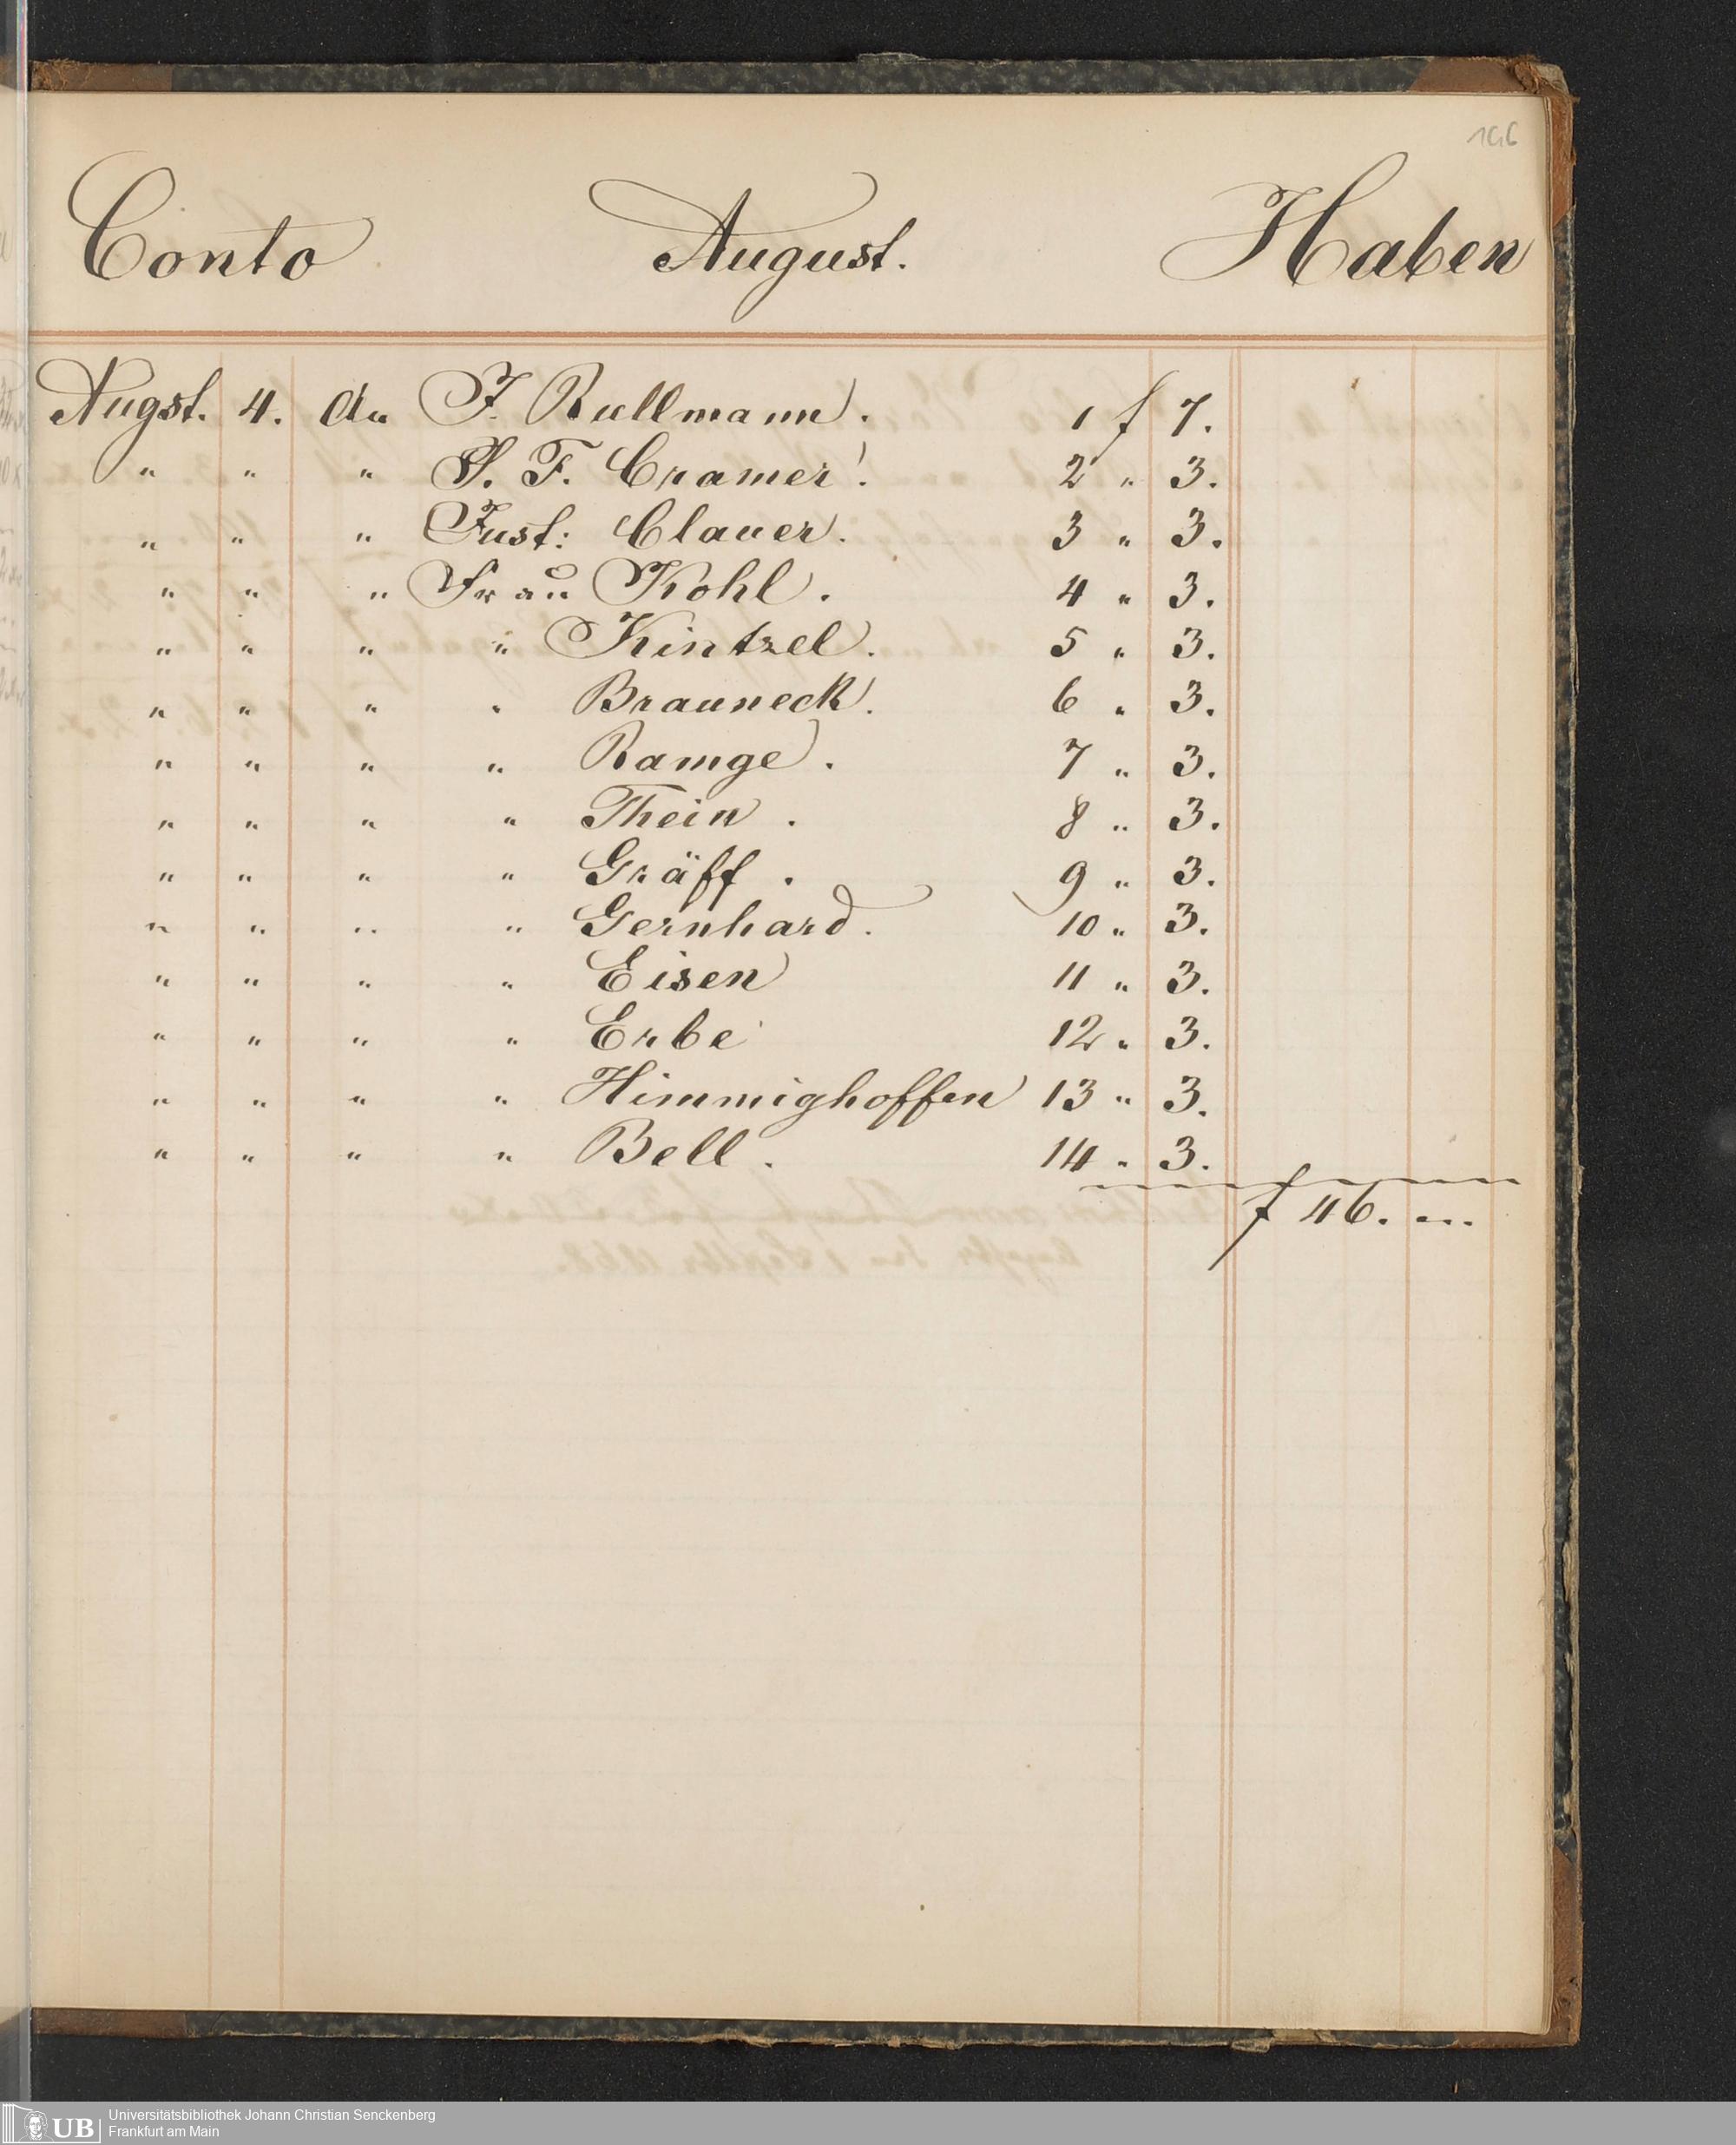 166
Conto August. Haben
Augst. 4. An J. Rullmann. 1 f 7.
" " " P. F. Cramer. 2 " 3.
" " " Just: Clauer. 3 " 3.
" " " Frau Kohl. 4 " 3.
" " " " Kintzel. 5 " 3.
" " " " Brauneck. 6 " 3.
" " " " Ramge. 7 " 3.
" " " " Thein. 8 " 3.
" " " " Gräff. 9 " 3.
" " " " Gernhard. 10 " 3.
" " " " Eisen 11 " 3.
" " " " Erbe 12 " 3.
" " " " Himmighoffen 13 " 3.
" " " " Bell. 14 " 3.
f 46. "..
UB Universitätsbibliothek Johann Christian Senckenberg
Frankfurt am Main